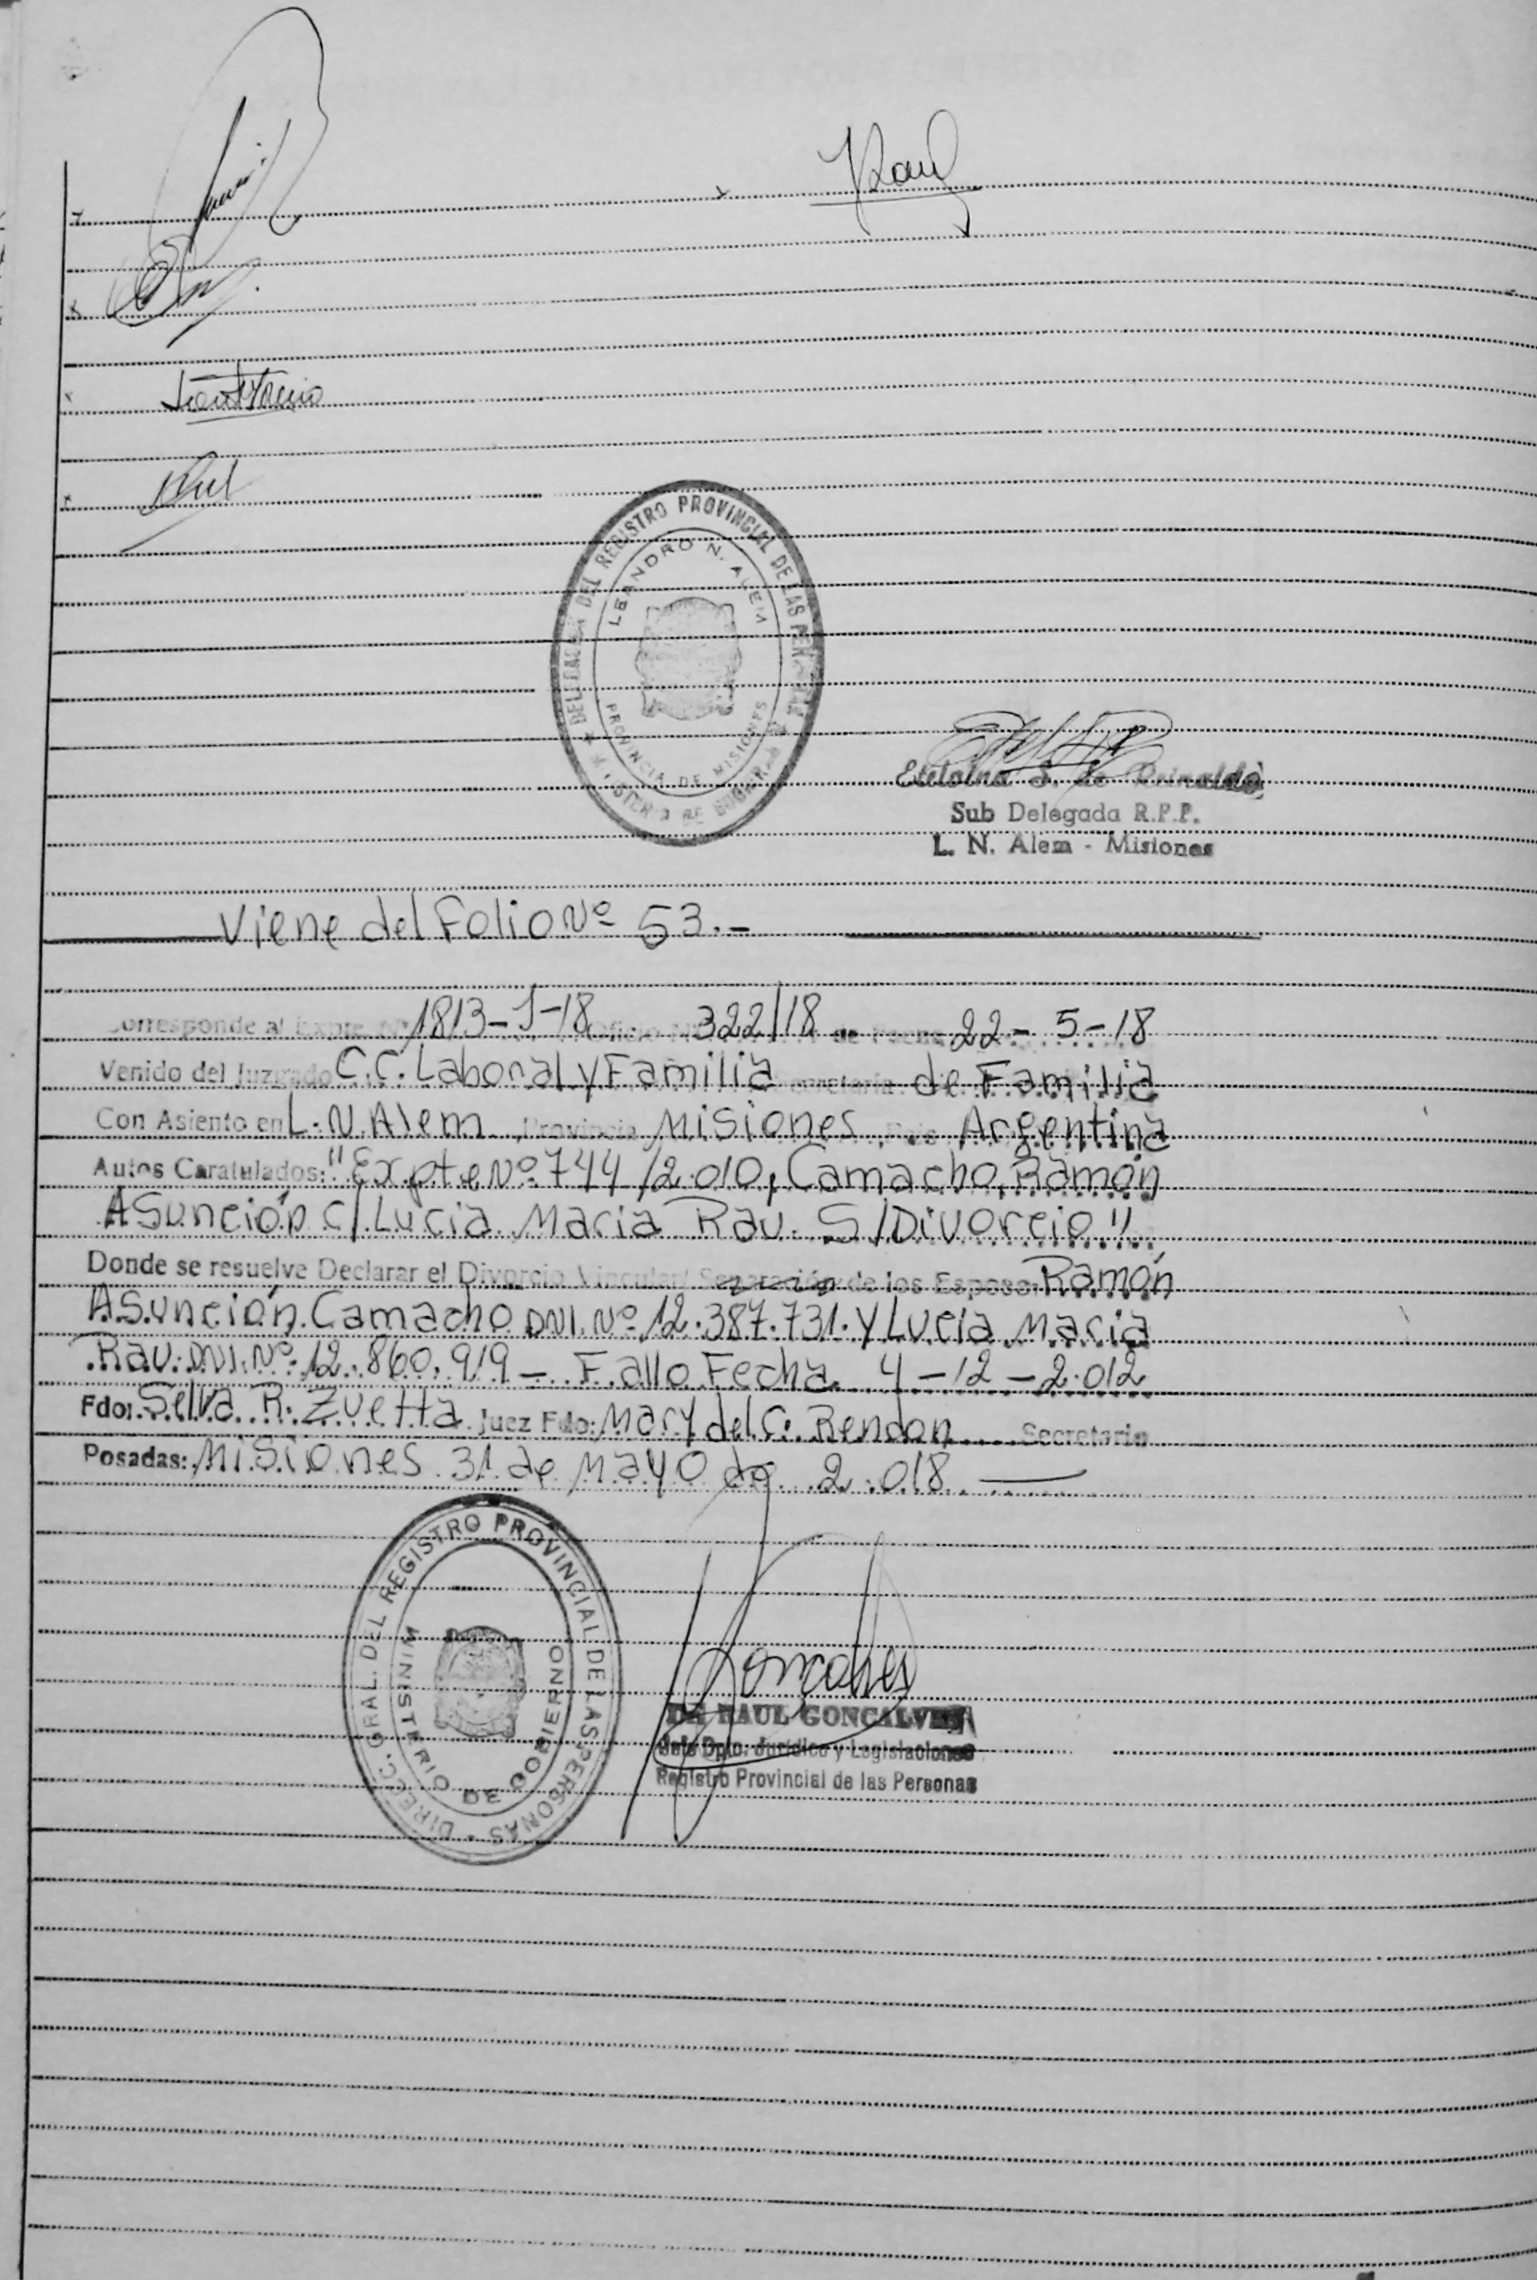 Rau
DELEGACION DEL REGISTRO PROVINCIAL DE LAS PERSONAS
LEANDRO N. ALEM
PROVINCIA DE MISIONES
MINISTERIO DE GOBIERNO
Etelvina S. de Reinaldo
Sub Delegada R.P.P.
L. N. Alem - Misiones
Viene del Folio Nº 53.-
Corresponde al Expte. Nº 1813-J-18 Oficio Nº 322/18 de Fecha 22-5-18
Venido del Juzgado C.C. Laboral y Familia Secretaria de Familia
Con Asiento en L.N. Alem Provincia Misiones País Argentina
Autos Caratulados: "Expte Nº 744/2.010, Camacho, Ramón
Asunción c/ Lucia Maria Rau. S/Divorcio"
Donde se resuelve Declarar el Divorcio Vincular/ Separación de los Esposo: Ramón
Asunción Camacho DNI. Nº 12.387.731. y Lucía Maria
Rau. DNI. Nº 12.860.919 - Fallo Fecha 4-12-2.012
Fdo: Selva R. Zuetta Juez Fdo: Mary del C. Rendon Secretario
Posadas: Misiones 31 de Mayo de 2.018
DIRECC. GRAL. DEL REGISTRO PROVINCIAL DE LAS PERSONAS
MINISTERIO DE GOBIERNO
Goncalves
DR RAUL GONCALVES
Jefe Dpto. Jurídico y Legislaciones
Registro Provincial de las Personas